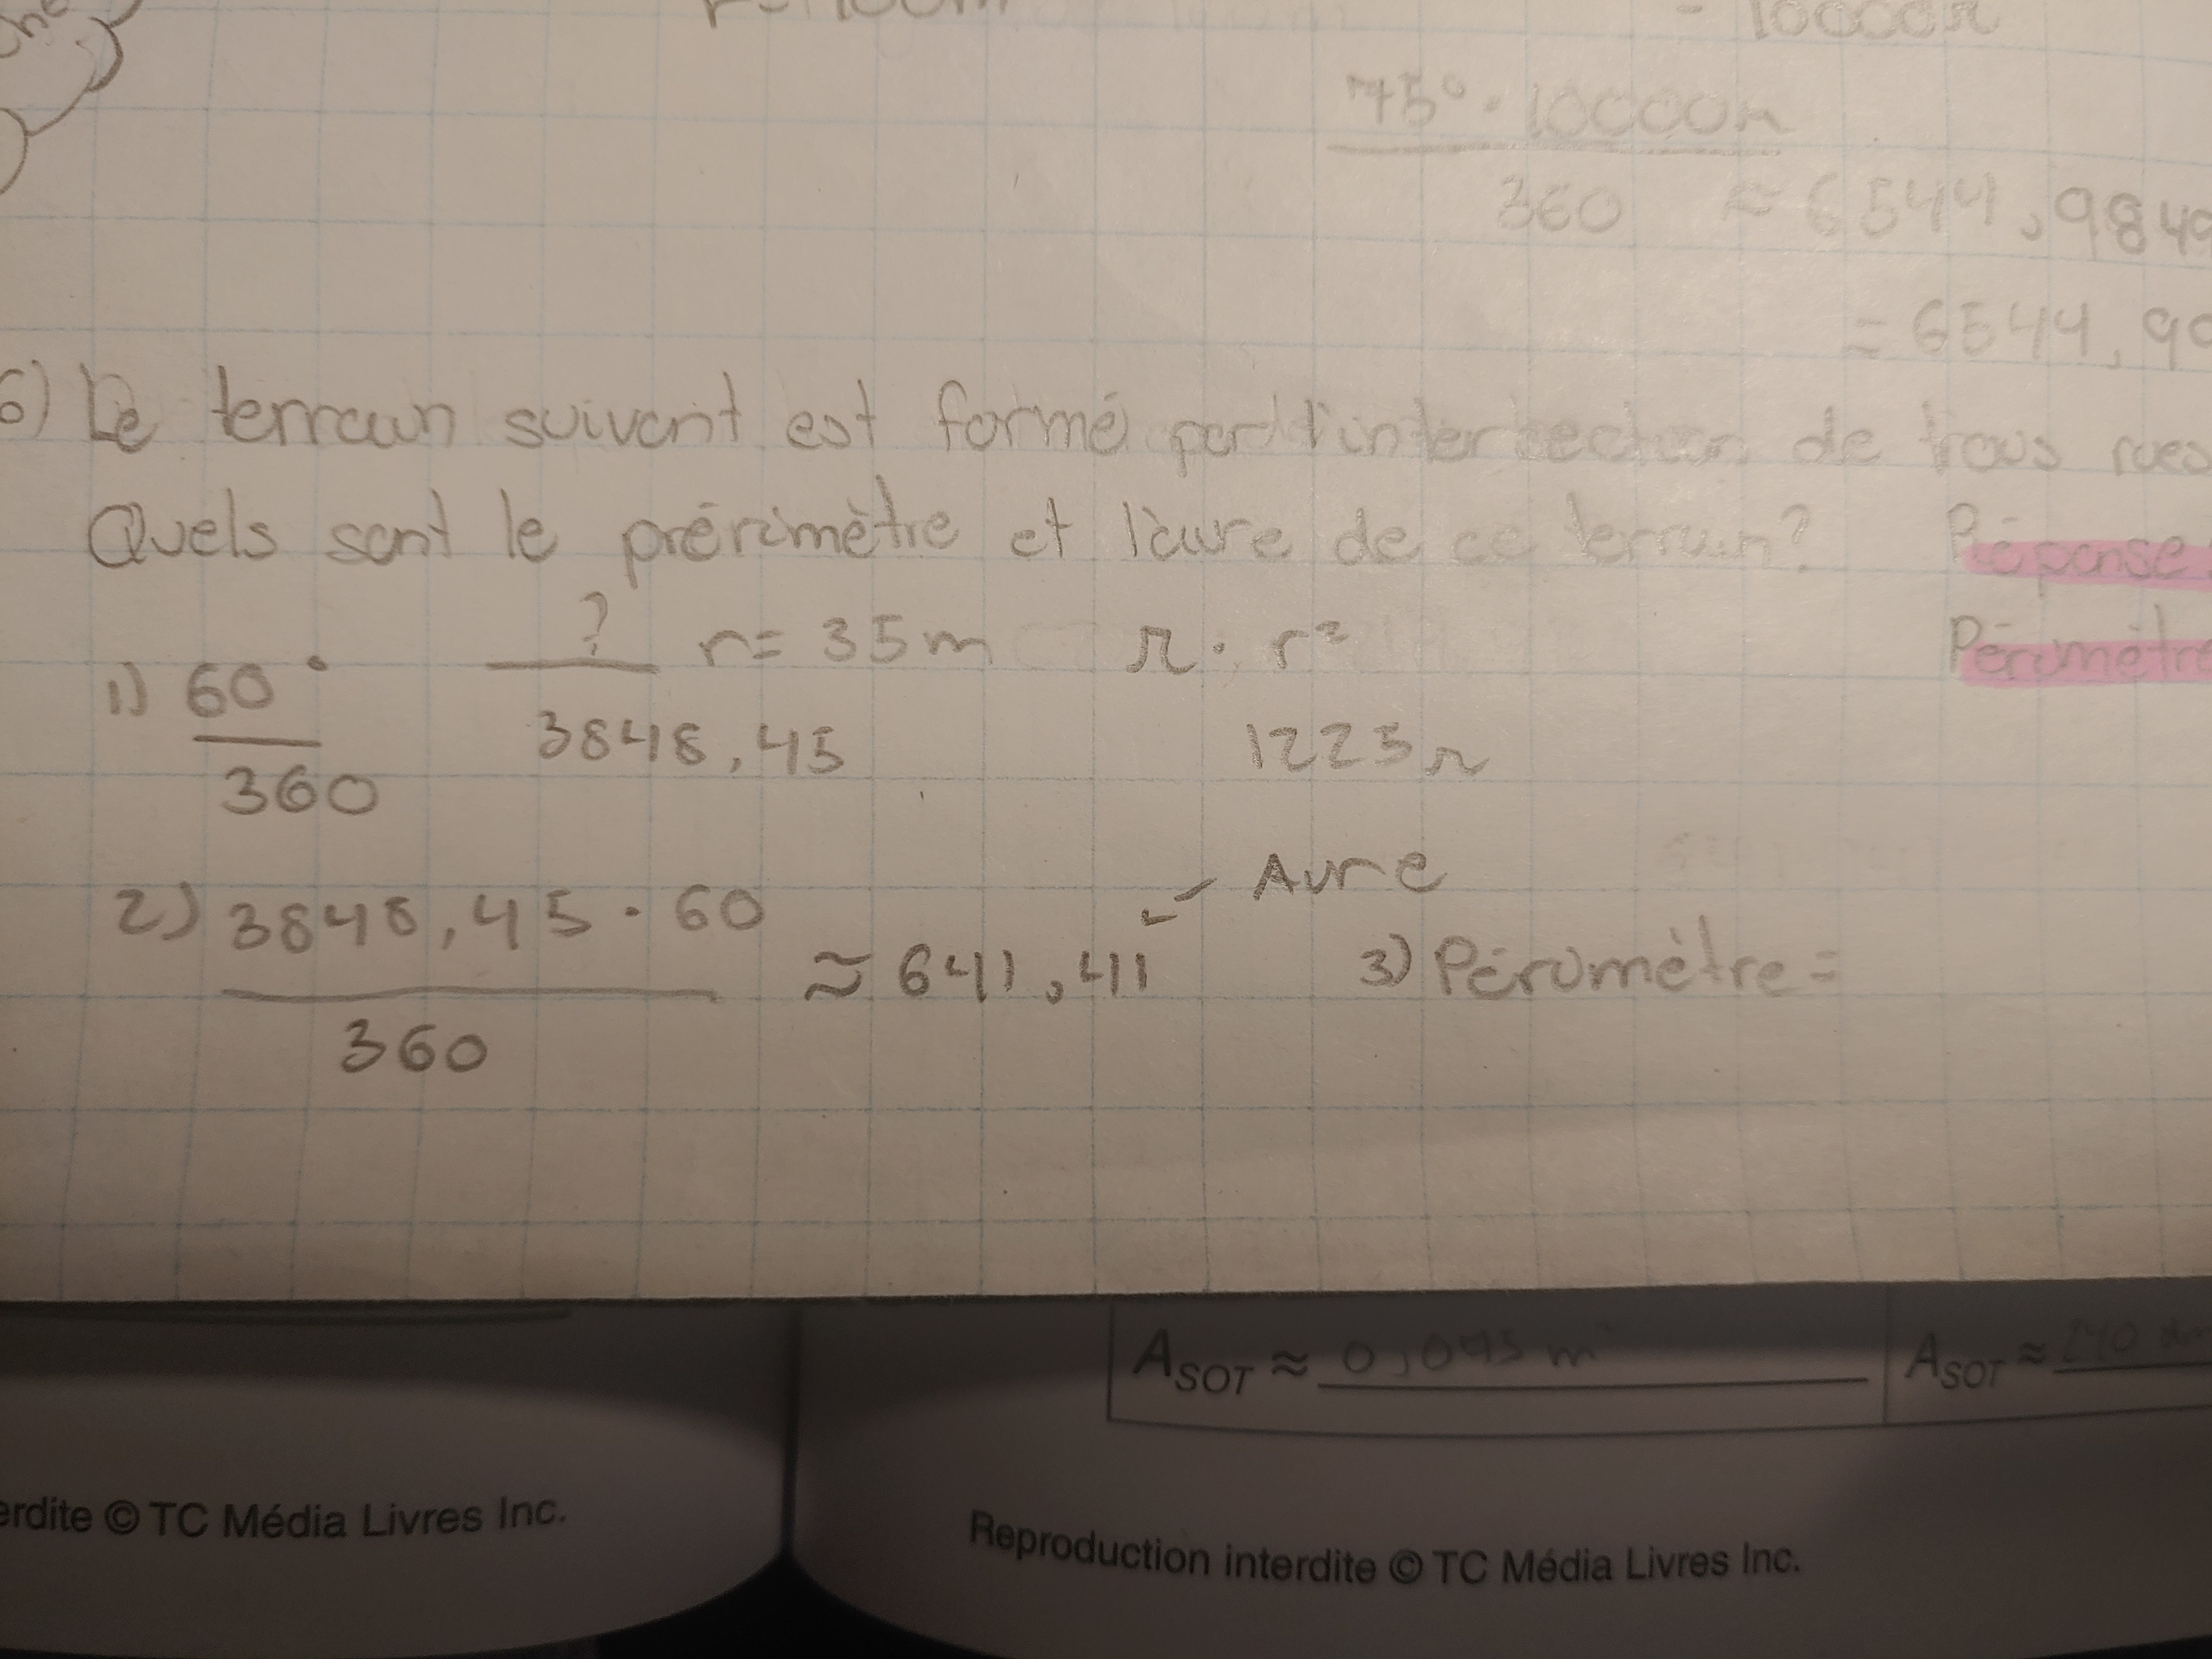 75° · 10000π
360 ≈ 6544,9849
= 6544,99
6) Le terrain suivant est formé par l'intersection de trois rues
Quels sont le prérimètre et l'aire de ce terrain? Réponse:
? r= 35m π · r² Périmètre
1) 60° 3848,45 1225π
360
Aire
2) 3848,45 · 60 ≈ 641,41 3) Périmètre =
360
ASOT ≈ 0,045 m ASOT ≈
erdite © TC Média Livres Inc. Reproduction interdite © TC Média Livres Inc.